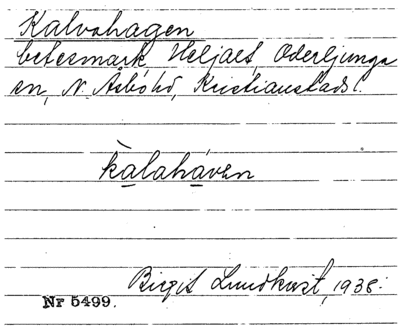 Kalvahagen
betesmark, Heljalt, Oderljunga
sn, N. Åsbo hd, Kristianstads l.
kàlaháven
Birgit Lundkvist, 1938.
Nr 5499.